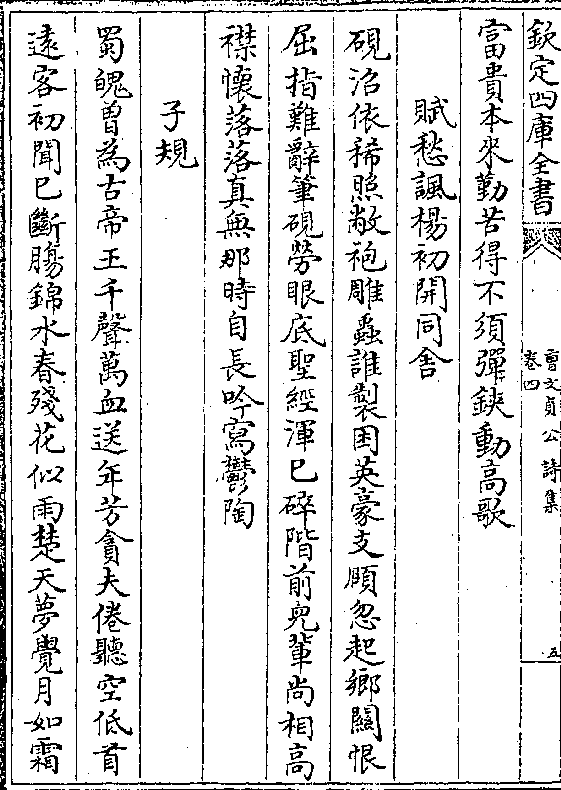 欽定四庫全書
曹文貞公詩集
卷四
五
富貴本來勤苦得不須彈鋏動高歌
賦愁諷楊初開同舍
硯沼依稀照敝袍雕蟲誰製困英豪支頤忽起鄉關恨
屈指難辭筆硯勞眼底聖經渾已碎階前兒輩尚相高
襟懷落落真無那時自長吟寫鬱陶
子規
蜀魄曽為古帝王千聲萬血送年芳貪夫倦聽空低首
遠客初聞已斷腸錦水春殘花似雨楚天夢覺月如霜